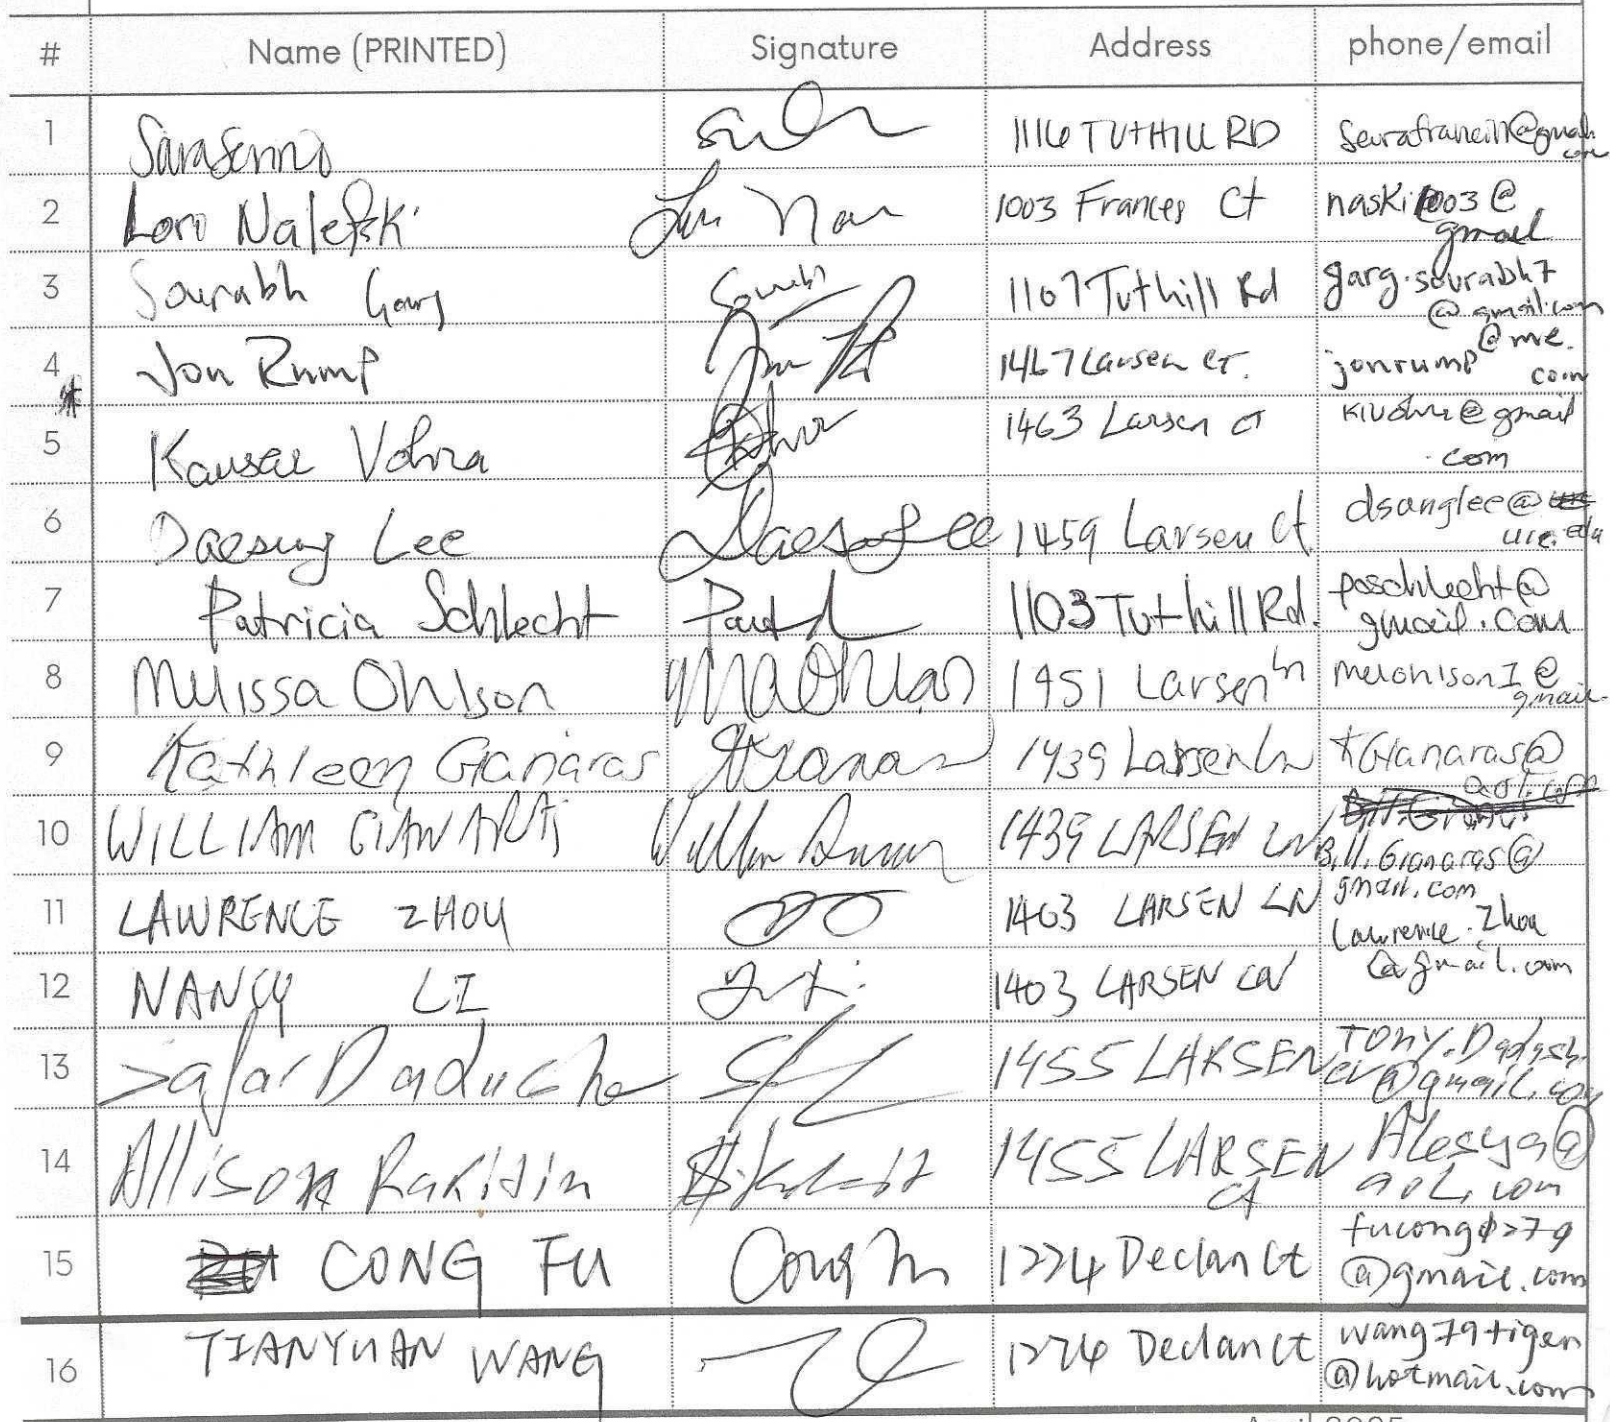 # Name (PRINTED) Signature Address phone/email
1 1116 TUTHILL RD
2 Lori Nalefski 1003 Frances Ct naski1003@
gmail
3 Sourabh Garg Sourabh 1107 Tuthill Rd garg.sourabh7
@gmail.com
4 Jon Rump 1467 Larsen CT. jonrump @me.
com
5 Kausar Vohra 1463 Larsen CT @gmail
.com
6 Daesung Lee 1459 Larsen Ct dsanglee@
uic.edu
7 Patricia Schlecht 1103 Tuthill Rd. paschlecht@
gmail.com
8 Melissa Ohlson 1451 Larsen Ln melohlson1@
gmail.
9 Kathleen Gianaras 1439 Larsen Ln KGianaras@
aol.com
10 WILLIAM GIANARAS 1439 LARSEN LN Bill.Gianaras@
gmail.com
11 LAWRENCE ZHOU 1403 LARSEN LN Lawrence.Zhou
@gmail.com
12 NANCY LI 1403 LARSEN LN
13 Safar 1455 LARSEN
@gmail.com
14 Allison Rakitin 1455 LARSEN Alesya@
CT aol.com
15 CONG FU Cong Fu 1274 Declan Ct fucong0279
@gmail.com
16 TIANYUAN WANG 1274 Declan Ct wang79tiger
@hotmail.com